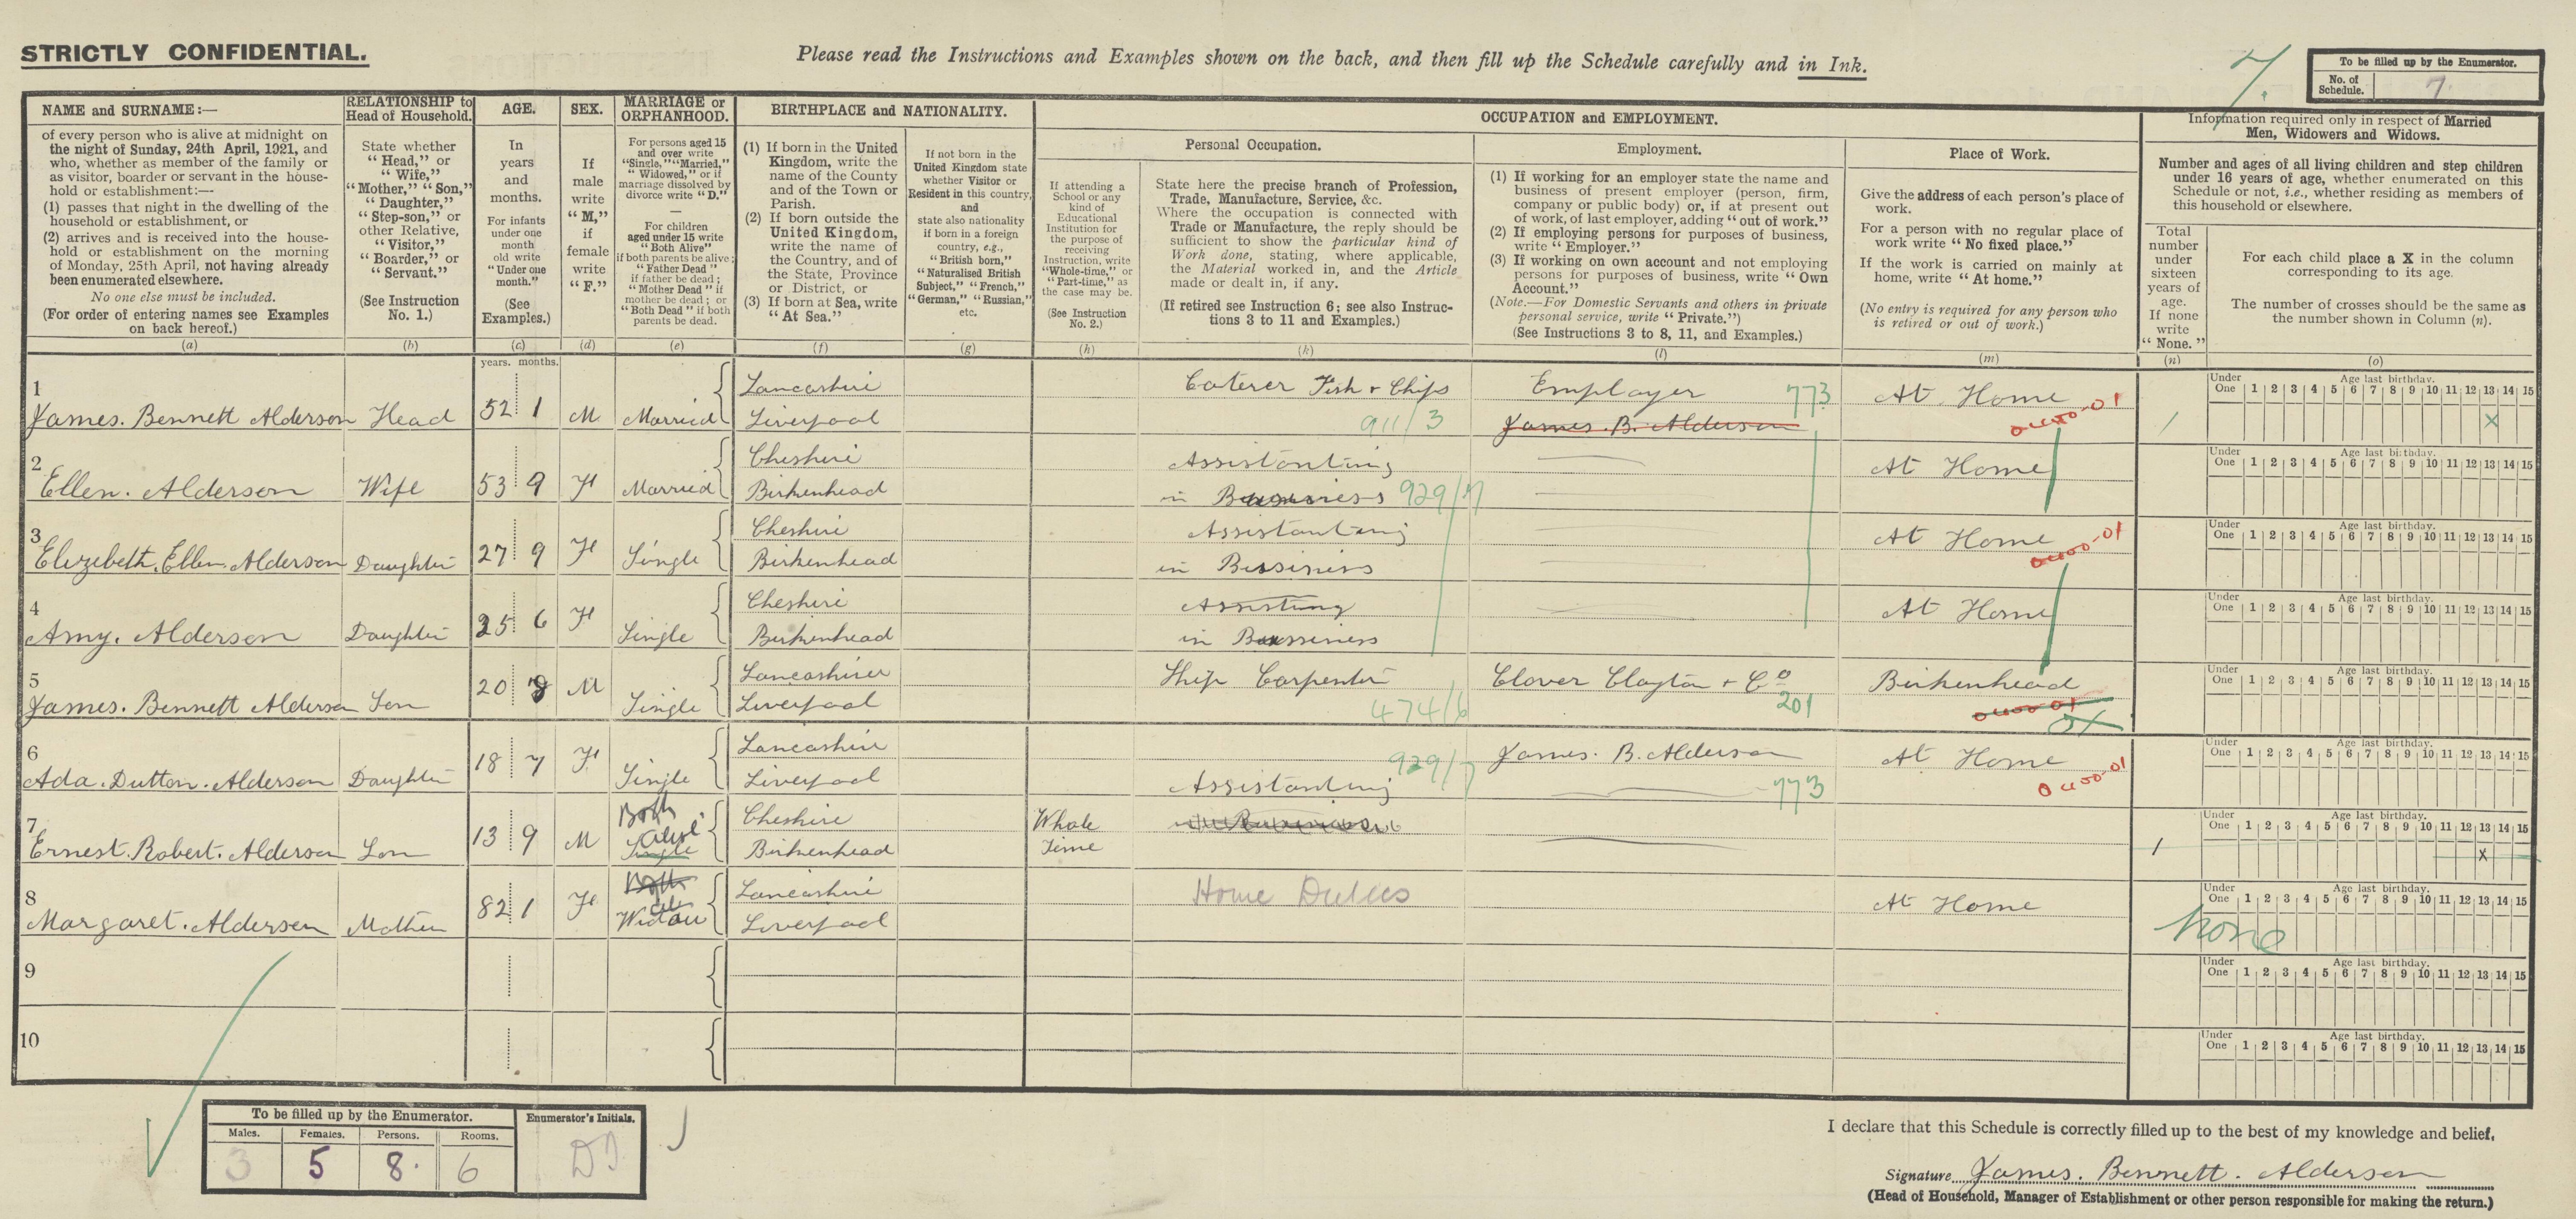 STRICTLY CONFIDENTIAL.
Please read the Instructions and Examples shown on the back, and then fill up the Schedule carefully and in Ink.
7.
To be filled up by the Enumerator.
No. of Schedule. 7.
NAME and SURNAME:—
of every person who is alive at midnight on
the night of Sunday, 24th April, 1921, and
who, whether as member of the family or
as visitor, boarder or servant in the house-
hold or establishment:—
(1) passes that night in the dwelling of the
household or establishment, or
(2) arrives and is received into the house-
hold or establishment on the morning
of Monday, 25th April, not having already
been enumerated elsewhere.
No one else must be included.
(For order of entering names see Examples
on back hereof.)
(a)
RELATIONSHIP to
Head of Household.
State whether
"Head," or
"Wife,"
"Mother," "Son,"
"Daughter,"
"Step-son," or
other Relative,
"Visitor,"
"Boarder," or
"Servant."
(See Instruction
No. 1.)
(b)
AGE.
In
years
and
months.
For infants
under one
month
old write
"Under one
month."
(See
Examples.)
(c)
years. months.
SEX.
If
male
write
"M,"
if
female
write
"F."
(d)
MARRIAGE or
ORPHANHOOD.
For persons aged 15
and over write
"Single," "Married,"
"Widowed," or if
marriage dissolved by
divorce write "D."
—
For children
aged under 15 write
"Both Alive"
if both parents be alive;
"Father Dead"
if father be dead;
"Mother Dead" if
mother be dead; or
"Both Dead" if both
parents be dead.
(e)
BIRTHPLACE and NATIONALITY.
(1) If born in the United
Kingdom, write the
name of the County
and of the Town or
Parish.
(2) If born outside the
United Kingdom,
write the name of
the Country, and of
the State, Province
or District, or
(3) If born at Sea, write
"At Sea."
(f)
If not born in the
United Kingdom state
whether Visitor or
Resident in this country,
and
state also nationality
if born in a foreign
country, e.g.,
"British born,"
"Naturalised British
Subject," "French,"
"German," "Russian,"
etc.
(g)
OCCUPATION and EMPLOYMENT.
Personal Occupation.
If attending a
School or any
kind of
Educational
Institution for
the purpose of
receiving
Instruction, write
"Whole-time," or
"Part-time," as
the case may be.
(See Instruction
No. 2.)
(h)
State here the precise branch of Profession,
Trade, Manufacture, Service, &c.
Where the occupation is connected with
Trade or Manufacture, the reply should be
sufficient to show the particular kind of
Work done, stating, where applicable,
the Material worked in, and the Article
made or dealt in, if any.
(If retired see Instruction 6; see also Instruc-
tions 3 to 11 and Examples.)
(k)
Employment.
(1) If working for an employer state the name and
business of present employer (person, firm,
company or public body) or, if at present out
of work, of last employer, adding "out of work."
(2) If employing persons for purposes of business,
write "Employer."
(3) If working on own account and not employing
persons for purposes of business, write "Own
Account."
(Note.—For Domestic Servants and others in private
personal service, write "Private.")
(See Instructions 3 to 8, 11, and Examples.)
(l)
Place of Work.
Give the address of each person's place of
work.
For a person with no regular place of
work write "No fixed place."
If the work is carried on mainly at
home, write "At home."
(No entry is required for any person who
is retired or out of work.)
(m)
Information required only in respect of Married
Men, Widowers and Widows.
Number and ages of all living children and step children
under 16 years of age, whether enumerated on this
Schedule or not, i.e., whether residing as members of
this household or elsewhere.
Total
number
under
sixteen
years of
age.
If none
write
"None."
(n)
For each child place a X in the column
corresponding to its age.
The number of crosses should be the same as
the number shown in Column (n).
(o)
Under One Age last birthday. 1 2 3 4 5 6 7 8 9 10 11 12 13 14 15
1 James. Bennett Alderson Head 52 1 M Married Lancashire Liverpool Caterer Fish + Chips 911/3 Employer 773 James. B. Alderson At Home 0400-01 1 X
Under One Age last birthday. 1 2 3 4 5 6 7 8 9 10 11 12 13 14 15
2 Ellen. Alderson Wife 53 9 F Married Cheshire Birkenhead Assistanting in Bussiness 929/7 At Home
Under One Age last birthday. 1 2 3 4 5 6 7 8 9 10 11 12 13 14 15
3 Elizebeth. Ellen. Alderson Daughter 27 9 F Single Cheshire Birkenhead Assistanting in Bissiness At Home 0400-01
Under One Age last birthday. 1 2 3 4 5 6 7 8 9 10 11 12 13 14 15
4 Amy. Alderson Daughter 25 6 F Single Cheshire Birkenhead Assisting in Bussiness At Home
Under One Age last birthday. 1 2 3 4 5 6 7 8 9 10 11 12 13 14 15
5 James. Bennett Alderson Son 20 8 M Single Lancashire Liverpool Ship Carpenter 474/6 Clover Clayton + Co 201 Birkenhead 0400-01
Under One Age last birthday. 1 2 3 4 5 6 7 8 9 10 11 12 13 14 15
6 Ada. Dutton. Alderson Daughter 18 7 F Single Lancashire Liverpool Assistanting 929/7 James. B. Alderson 773 At Home 0400-01
Under One Age last birthday. 1 2 3 4 5 6 7 8 9 10 11 12 13 14 15
7 Ernest. Robert. Alderson Son 13 9 M Both Alive Single Cheshire Birkenhead Whole Time 1 X
Under One Age last birthday. 1 2 3 4 5 6 7 8 9 10 11 12 13 14 15
8 Margaret. Alderson Mother 82 1 F Both Widow Lancashire Liverpool Home Duties At Home None
Under One Age last birthday. 1 2 3 4 5 6 7 8 9 10 11 12 13 14 15
9
Under One Age last birthday. 1 2 3 4 5 6 7 8 9 10 11 12 13 14 15
10
Under One Age last birthday. 1 2 3 4 5 6 7 8 9 10 11 12 13 14 15
To be filled up by the Enumerator.
Males. Females. Persons. Rooms.
3 5 8. 6
Enumerator's Initials.
I declare that this Schedule is correctly filled up to the best of my knowledge and belief.
Signature James. Bennett. Alderson
(Head of Household, Manager of Establishment or other person responsible for making the return.)